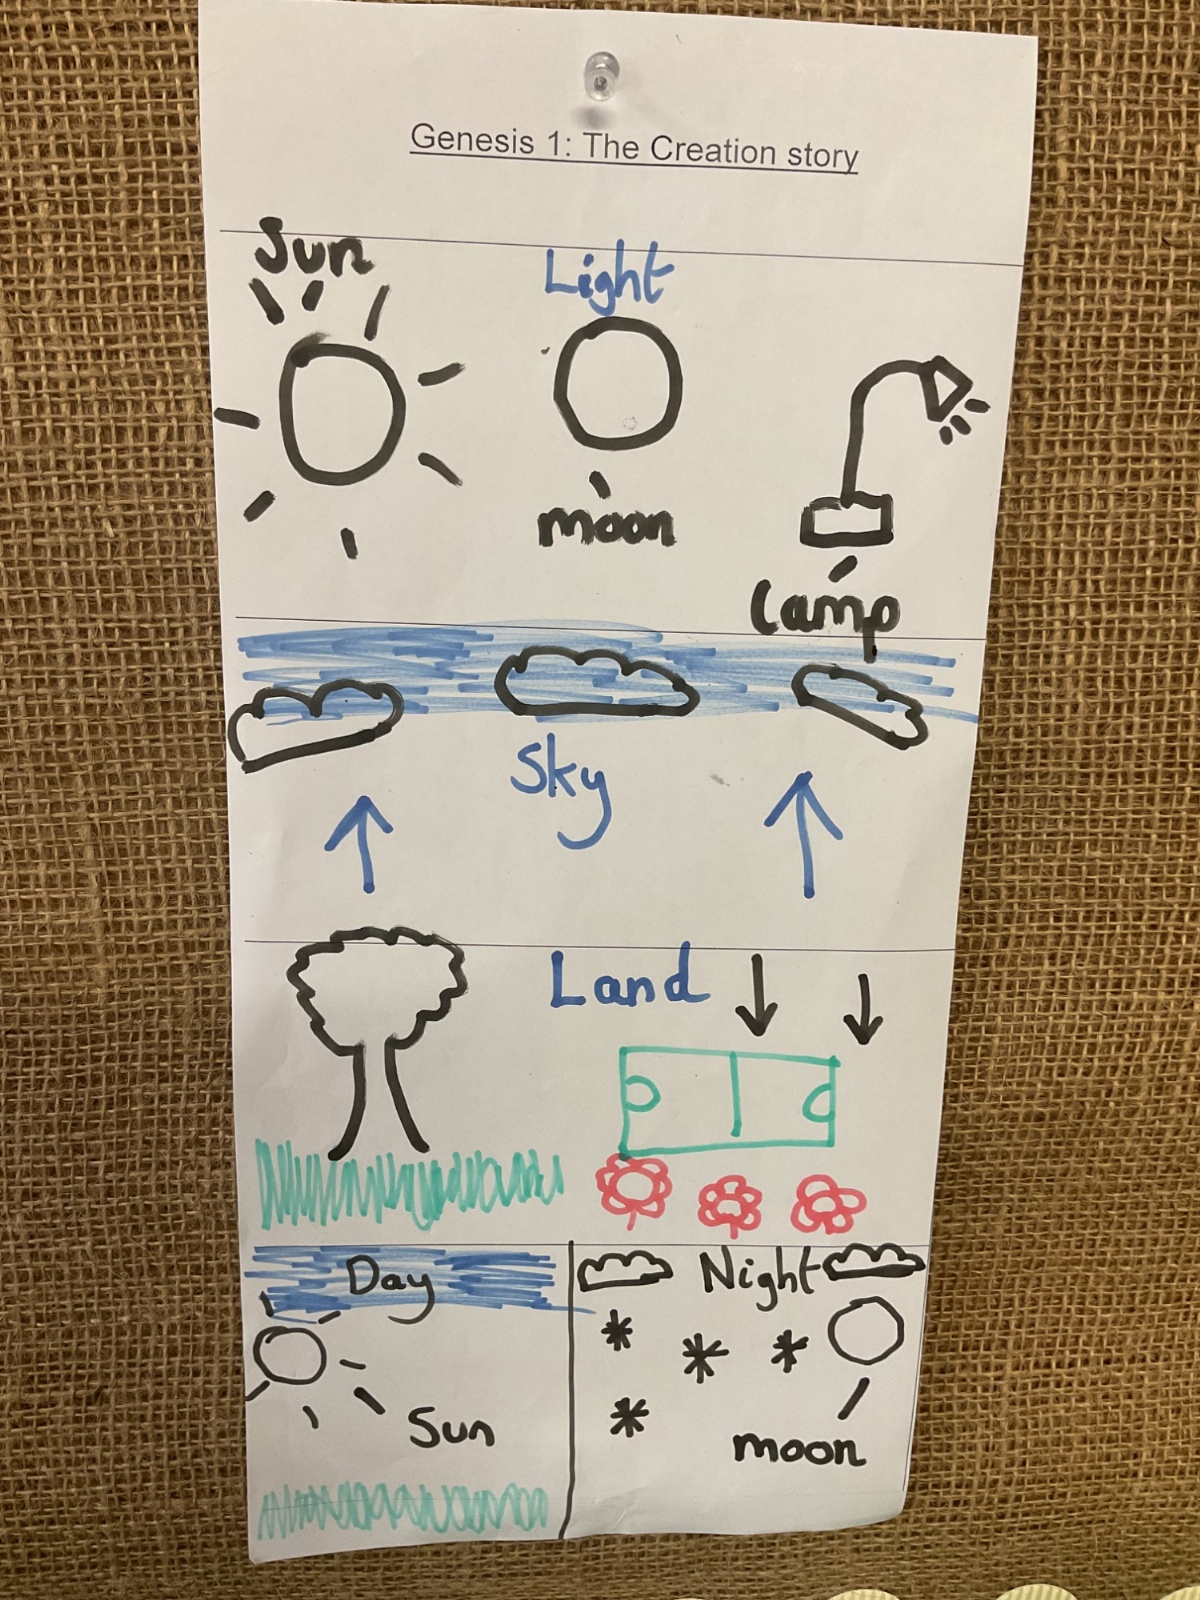 Genesis 1: The Creation story
Sun
Light
moon
Lamp
Sky
Land
Day
Night
Sun
moon